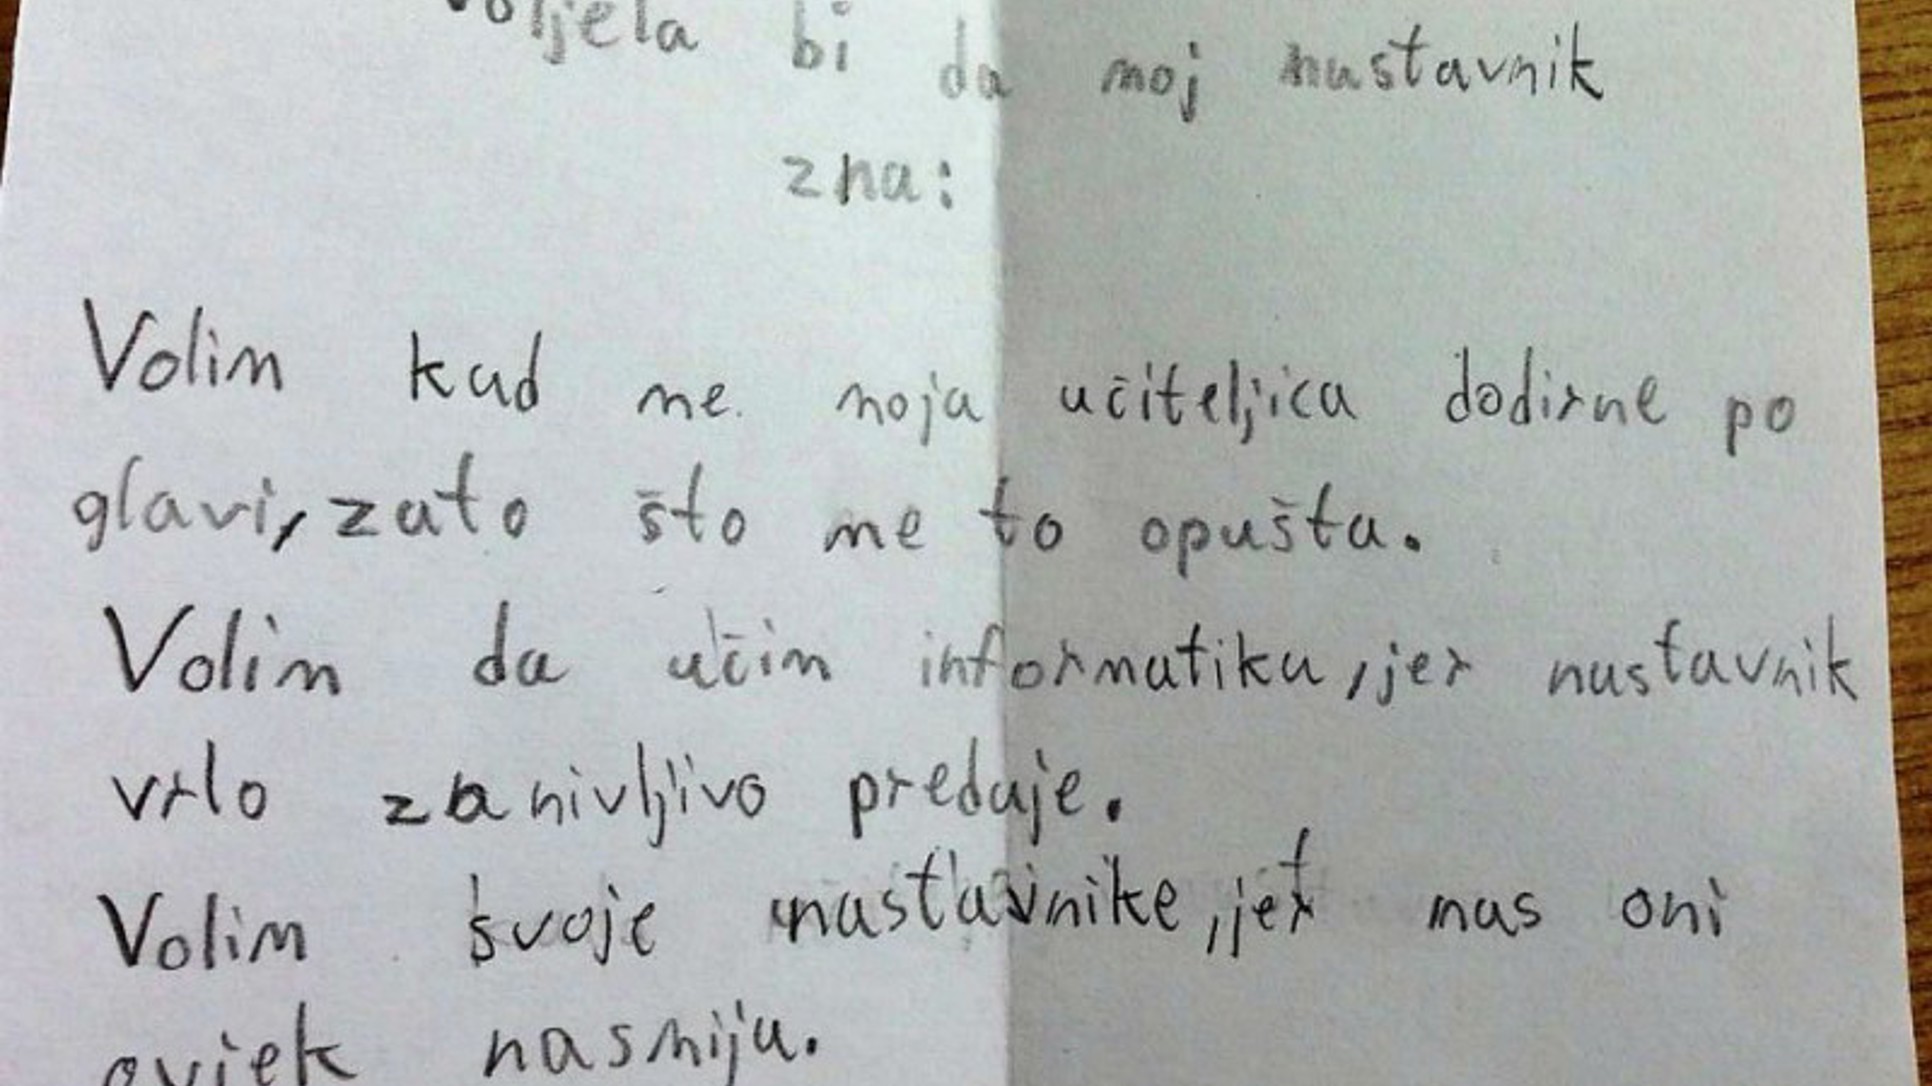 Voljela bi da moj nastavnik
zna:
Volim kad me moja učiteljica dodirne po
glavi, zato što me to opušta.
Volim da učim informatiku, jer nastavnik
vrlo zanivljivo predaje.
Volim svoje nastavnike, jer nas oni
uvjek nasmiju.